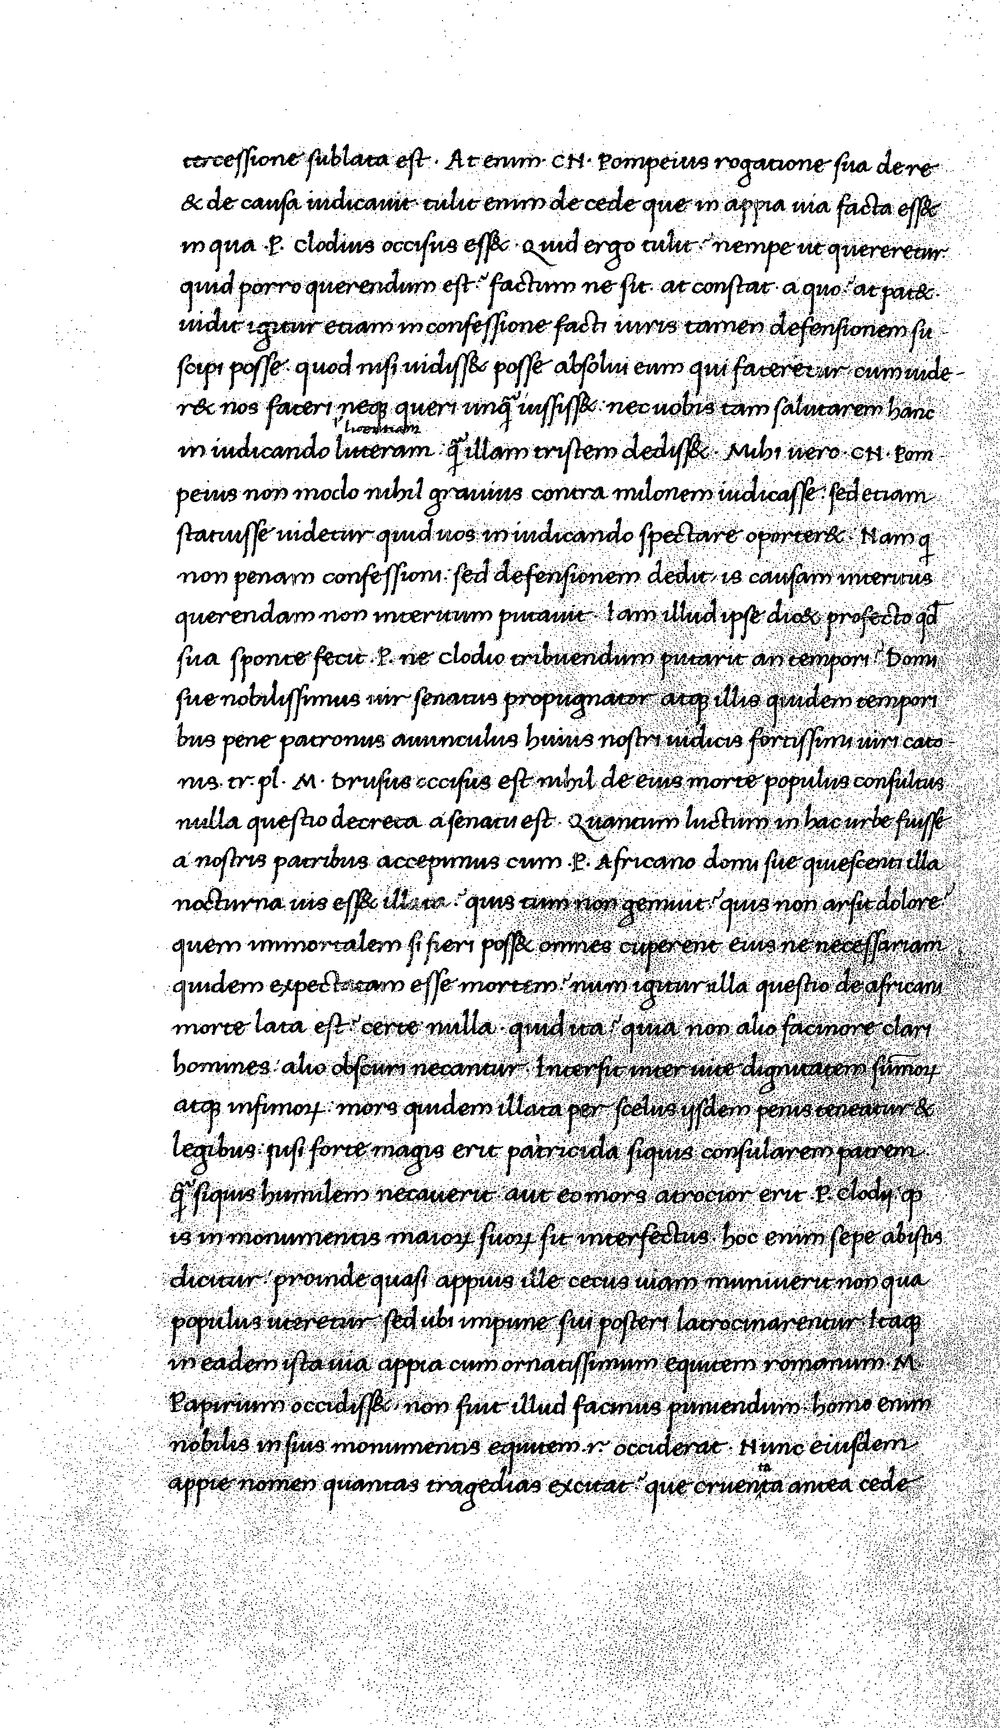 tercessione sublata est · At enim · CN · Pompeius rogatione sua de re
& de causa iudicauit · tulit enim de cede que in appia uia facta ess&
in qua · P. Clodius occisus ess& · Quid ergo tulit? nempe ut quereretur
quid porro querendum est? factum ne sit · at constat · a quo? at pat& ·
uidit igitur etiam in confessione facti iuris tamen defensionem su
scipi posse · quod nisi uidiss& posse absolui eum qui fateretur cum uide-
r& nos fateri neqꝫ queri unq̃ iussiss& · nec uobis tam salutarem hanc
in iudicando litteram q̃ illam tristem dediss& · Mihi uero · CN · Pom-
peius non modo nihil grauius contra milonem iudicasse · sed etiam
statuisse uidetur quid uos in iudicando spectare oporter& · Nam q
non penam confessioni · sed defensionem dedit · is causam interitus
querendam non interitum putauit · Iam illud ipse dic& profecto qd̄
sua sponte fecit · P. ne Clodio tribuendum putarit an tempori? Domi
sue nobilissimus uir senatus propugnator atqꝫ illis quidem tempori
bus pene patronus auunculus huius nostri iudicis fortissimi uiri cato-
nis · tr · pl · M · Drusus occisus est nihil de eius morte populus consultus
nulla questio decreta a senatu est · Quantum luctum in hac urbe fuisse
a nostris patribus accepimus cum · P. Africano domi sue quiescenti illa
nocturna uis ess& illata? quis tum non gemuit? quis non arsit dolore?
quem immortalem si fieri poss& omnes cuperent eius ne necessariam
quidem expectatam esse mortem? num igitur ulla questio de africani
morte lata est? certe nulla · quid ita? quia non alio facinore clari
homines · alio obscuri necantur · Intersit inter uite dignitatem sūmoꝝ
atqꝫ infimoꝝ · mors quidem illata per scelus ijsdem penis teneatur &
legibus · nisi forte magis erit patricida siquis consularem patrem
q̃ siquis humilem necauerit aut eo mors atrocior erit · P. Clodij · ꝙ
is in monumentis maioꝝ suoꝝ sit interfectus · hoc enim sepe ab istis
dicitur · proinde quasi appius ille cecus uiam muniuerit non qua
populus uteretur sed ubi impune sui posteri latrocinarentur · Itaqꝫ
in eadem ista uia appia cum ornatissimum equitem romanum · M ·
Papirium occidiss& · non fuit illud facinus puniendum · homo enim
nobilis in suis monumentis equitem · r · occiderat · Nunc eiusdem
appie nomen quantas tragedias excitat? que cruenta antea cede